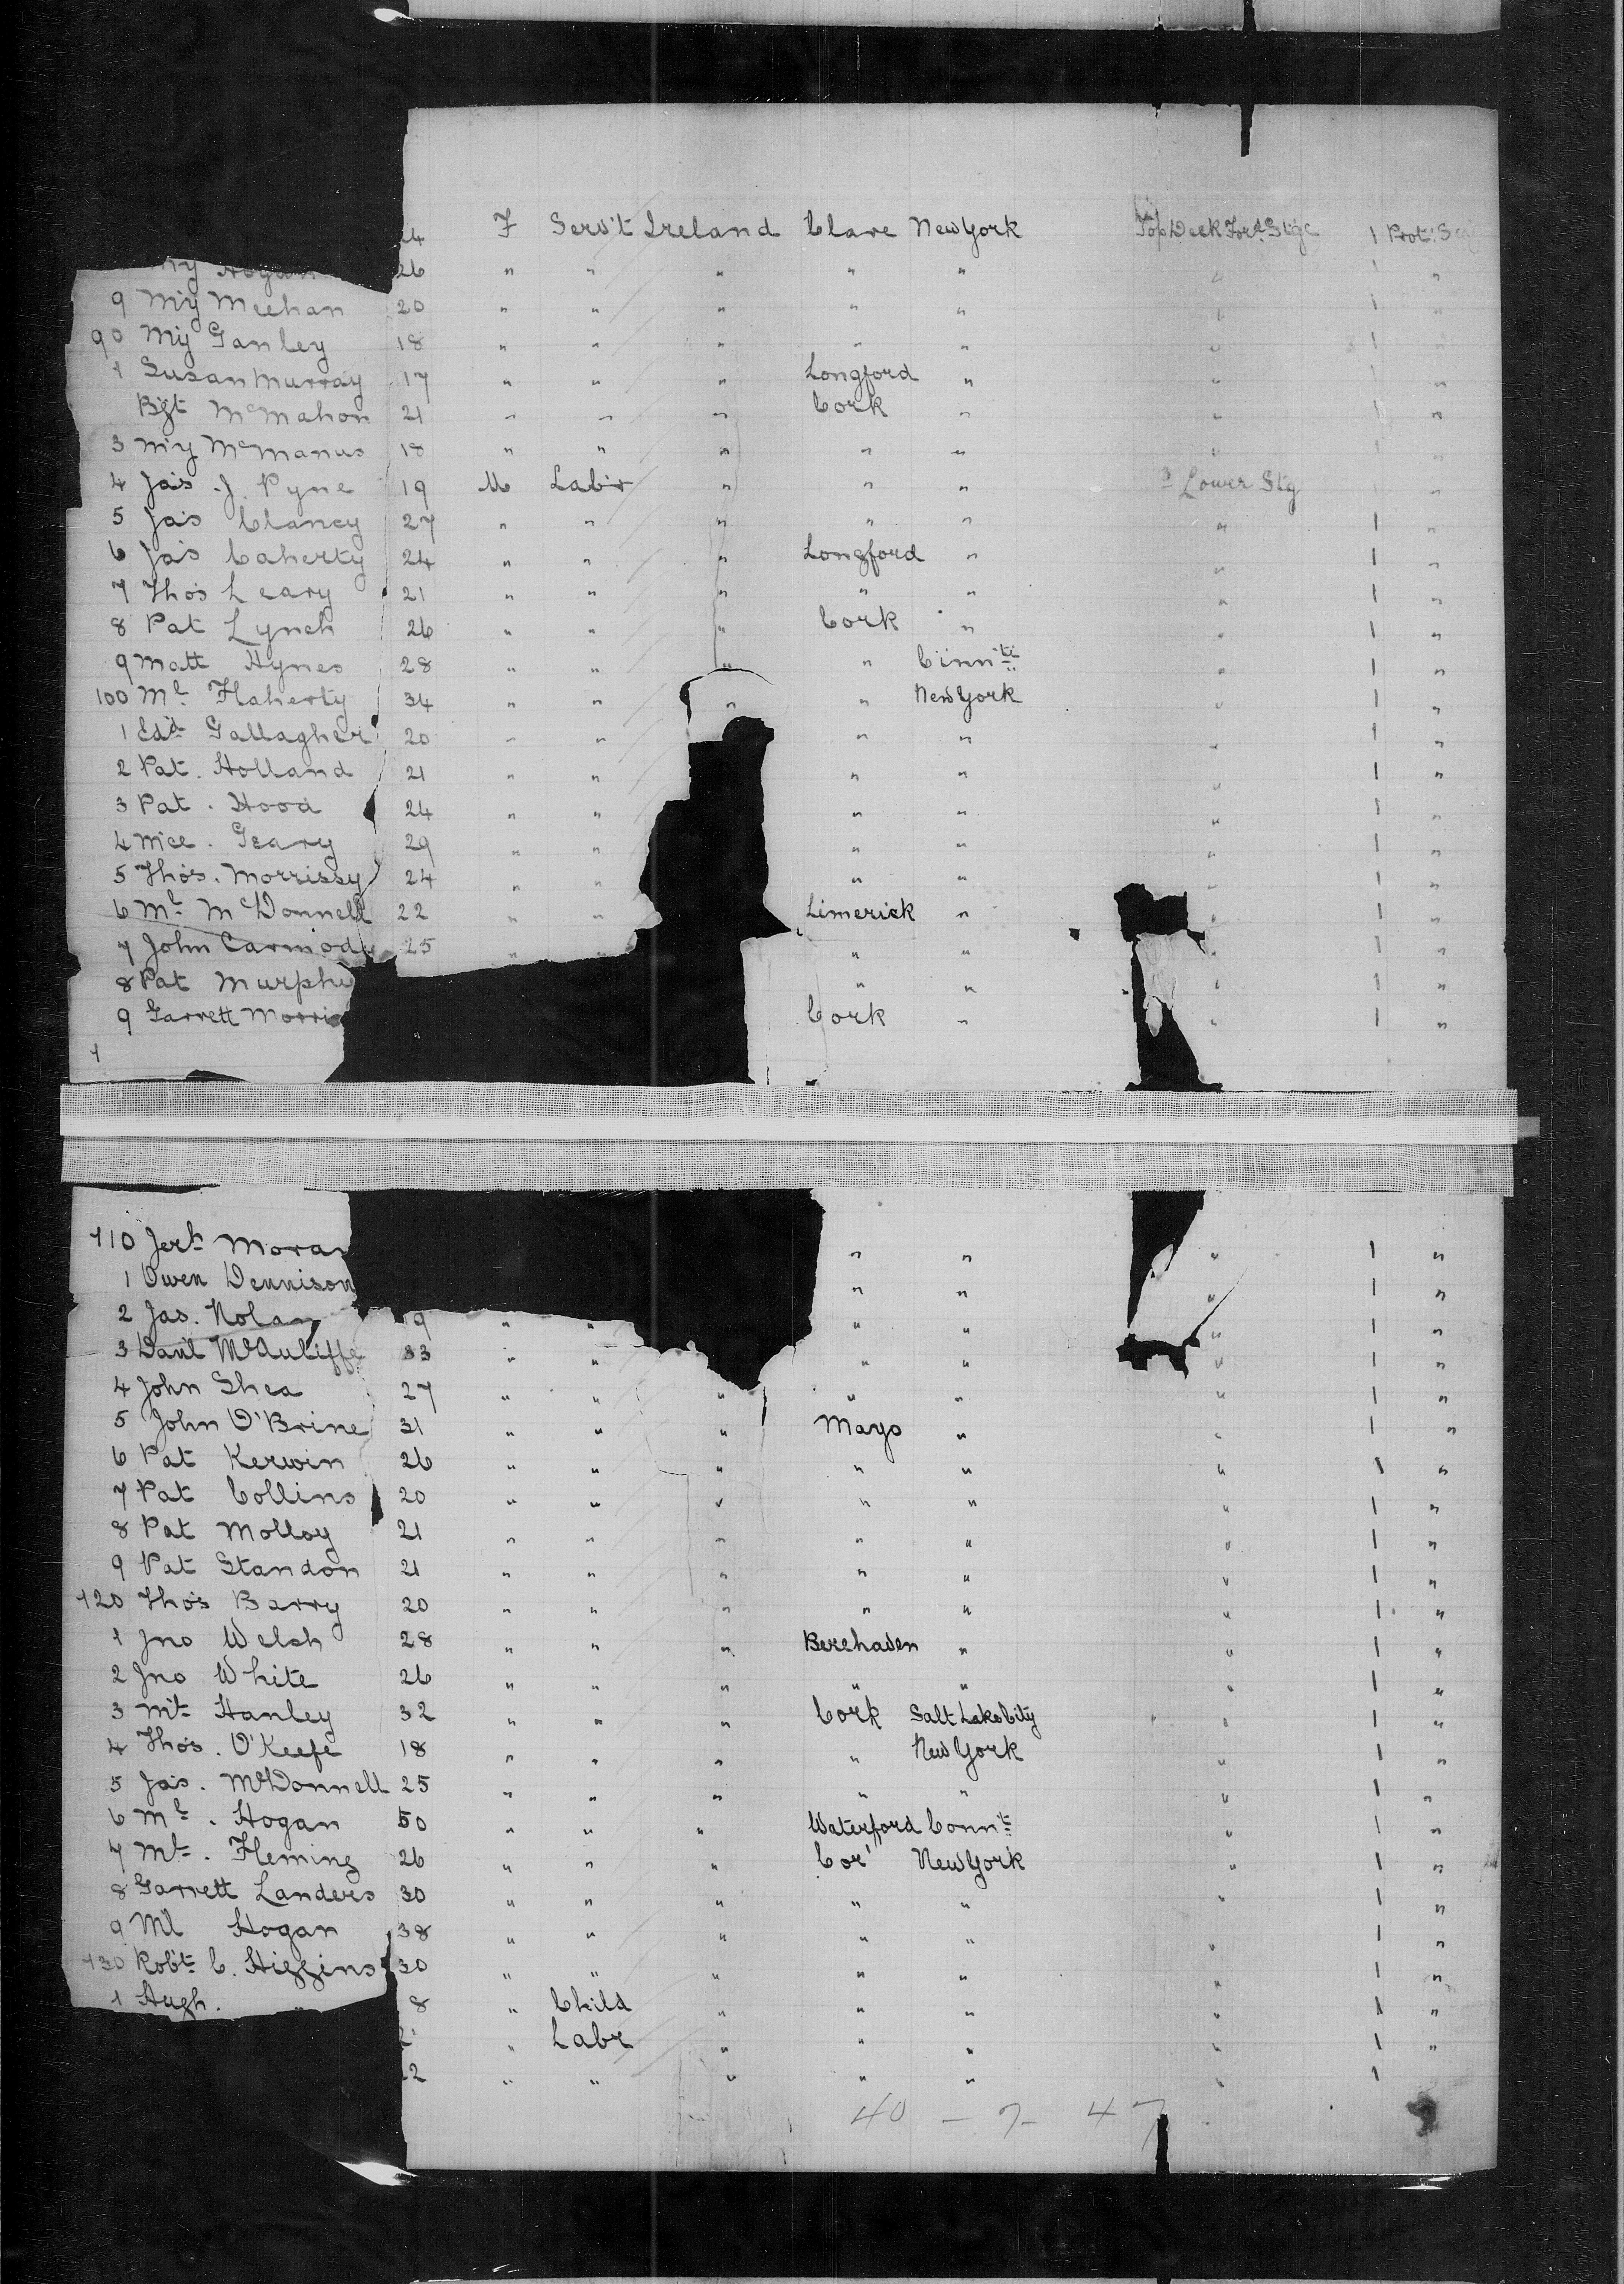 24 F Serv't Ireland Clare New York Top Deck For'd Stge 1 Prot.
My Hogan 26 " " " " " " 1 "
9 My Meehan 20 " " " " " " 1 "
90 My Ganley 18 " " " " " " 1 "
1 Susan Murray 17 " " " Longford " " 1 "
Bgt McMahon 21 " " " Cork " " 1 "
3 My McManus 18 " " " " " " 1 "
4 Jas J. Pyne 19 M Lab'r " " " Lower Stg 1 "
5 Jas Clancy 27 " " " " " " 1 "
6 Jas Caherty 24 " " " Longford " " 1 "
7 Thos Leary 21 " " " " " " 1 "
8 Pat Lynch 26 " " " Cork " " 1 "
9 Matt Hynes 28 " " " " Cinnti " 1 "
100 Ml Flaherty 34 " " " " New York " 1 "
1 Edd Gallagher 20 " " " " " 1 "
2 Pat. Holland 21 " " " " " 1 "
3 Pat. Hood 24 " " " " " 1 "
4 Mce. Geary 29 " " " " " 1 "
5 Thos. Morrissy 24 " " " " " 1 "
6 Ml McDonnell 22 " " Limerick " " 1 "
7 John Carmody 25 " " " " " 1 "
8 Pat Murphy " " " 1 "
9 Garrett Morris Cork " " 1 "
1
110 Jerh Moran " " " 1 "
1 Owen Dennison " " " 1 "
2 Jas. Nolan 19 " " " " " 1 "
3 Dan'l McAuliffe 33 " " " " " 1 "
4 John Shea 27 " " " " " " 1 "
5 John O'Brine 31 " " " Mayo " " 1 "
6 Pat Kerwin 26 " " " " " " 1 "
7 Pat Collins 20 " " " " " " 1 "
8 Pat Molloy 21 " " " " " " 1 "
9 Pat Standon 21 " " " " " " 1 "
120 Thos Barry 20 " " " " " " 1 "
1 Jno Welsh 28 " " " Berehaven " " 1 "
2 Jno White 26 " " " " " " 1 "
3 Mt Hanley 32 " " " Cork Salt Lake City " 1 "
4 Thos. O'Keefe 18 " " " " New York " 1 "
5 Jas. McDonnell 25 " " " " " " 1 "
6 Ml. Hogan 50 " " " Waterford Connt " 1 "
7 Mt. Fleming 26 " " " Cor New York " 1 "
8 Garrett Landers 30 " " " " " " 1 "
9 Ml Hogan 38 " " " " " 1 "
130 Robt C. Higgins 30 " " " " " " 1 "
1 Hugh. " 8 " Child " " " " 1 "
2 " Labr " " " " 1 "
22 " " " " " " 1
40 - 7 - 47